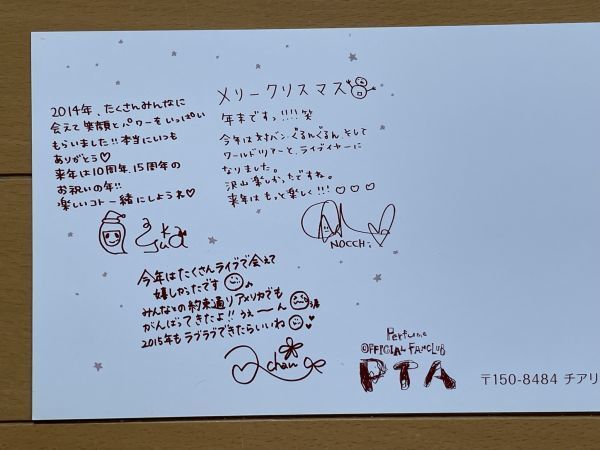 2014年、たくさんみんなに
会えて笑顔とパワーをいっぱい
もらいました!!本当にいつも
ありがとう♡
来年は10周年、15周年の
お祝いの年!!
楽しいコト一緒にしようね♡
メリークリスマス
年末ですっ!!!!笑
今年は対バン ぐるんぐるん そして
ワールドツアーと、ライブイヤーに
なりました。
沢山楽しかったですね。
来年はもっと楽しく!!! ♡♡♡
NOCCHi
今年はたくさんライブで会えて
嬉しかったです
みんなとの約束通りアメリカでも
がんばってきたよ!!うぇーん
2015年もラブラブできたらいいね
chan
Perfume
OFFICIAL FANCLUB
PTA
〒150-8484 チアリ